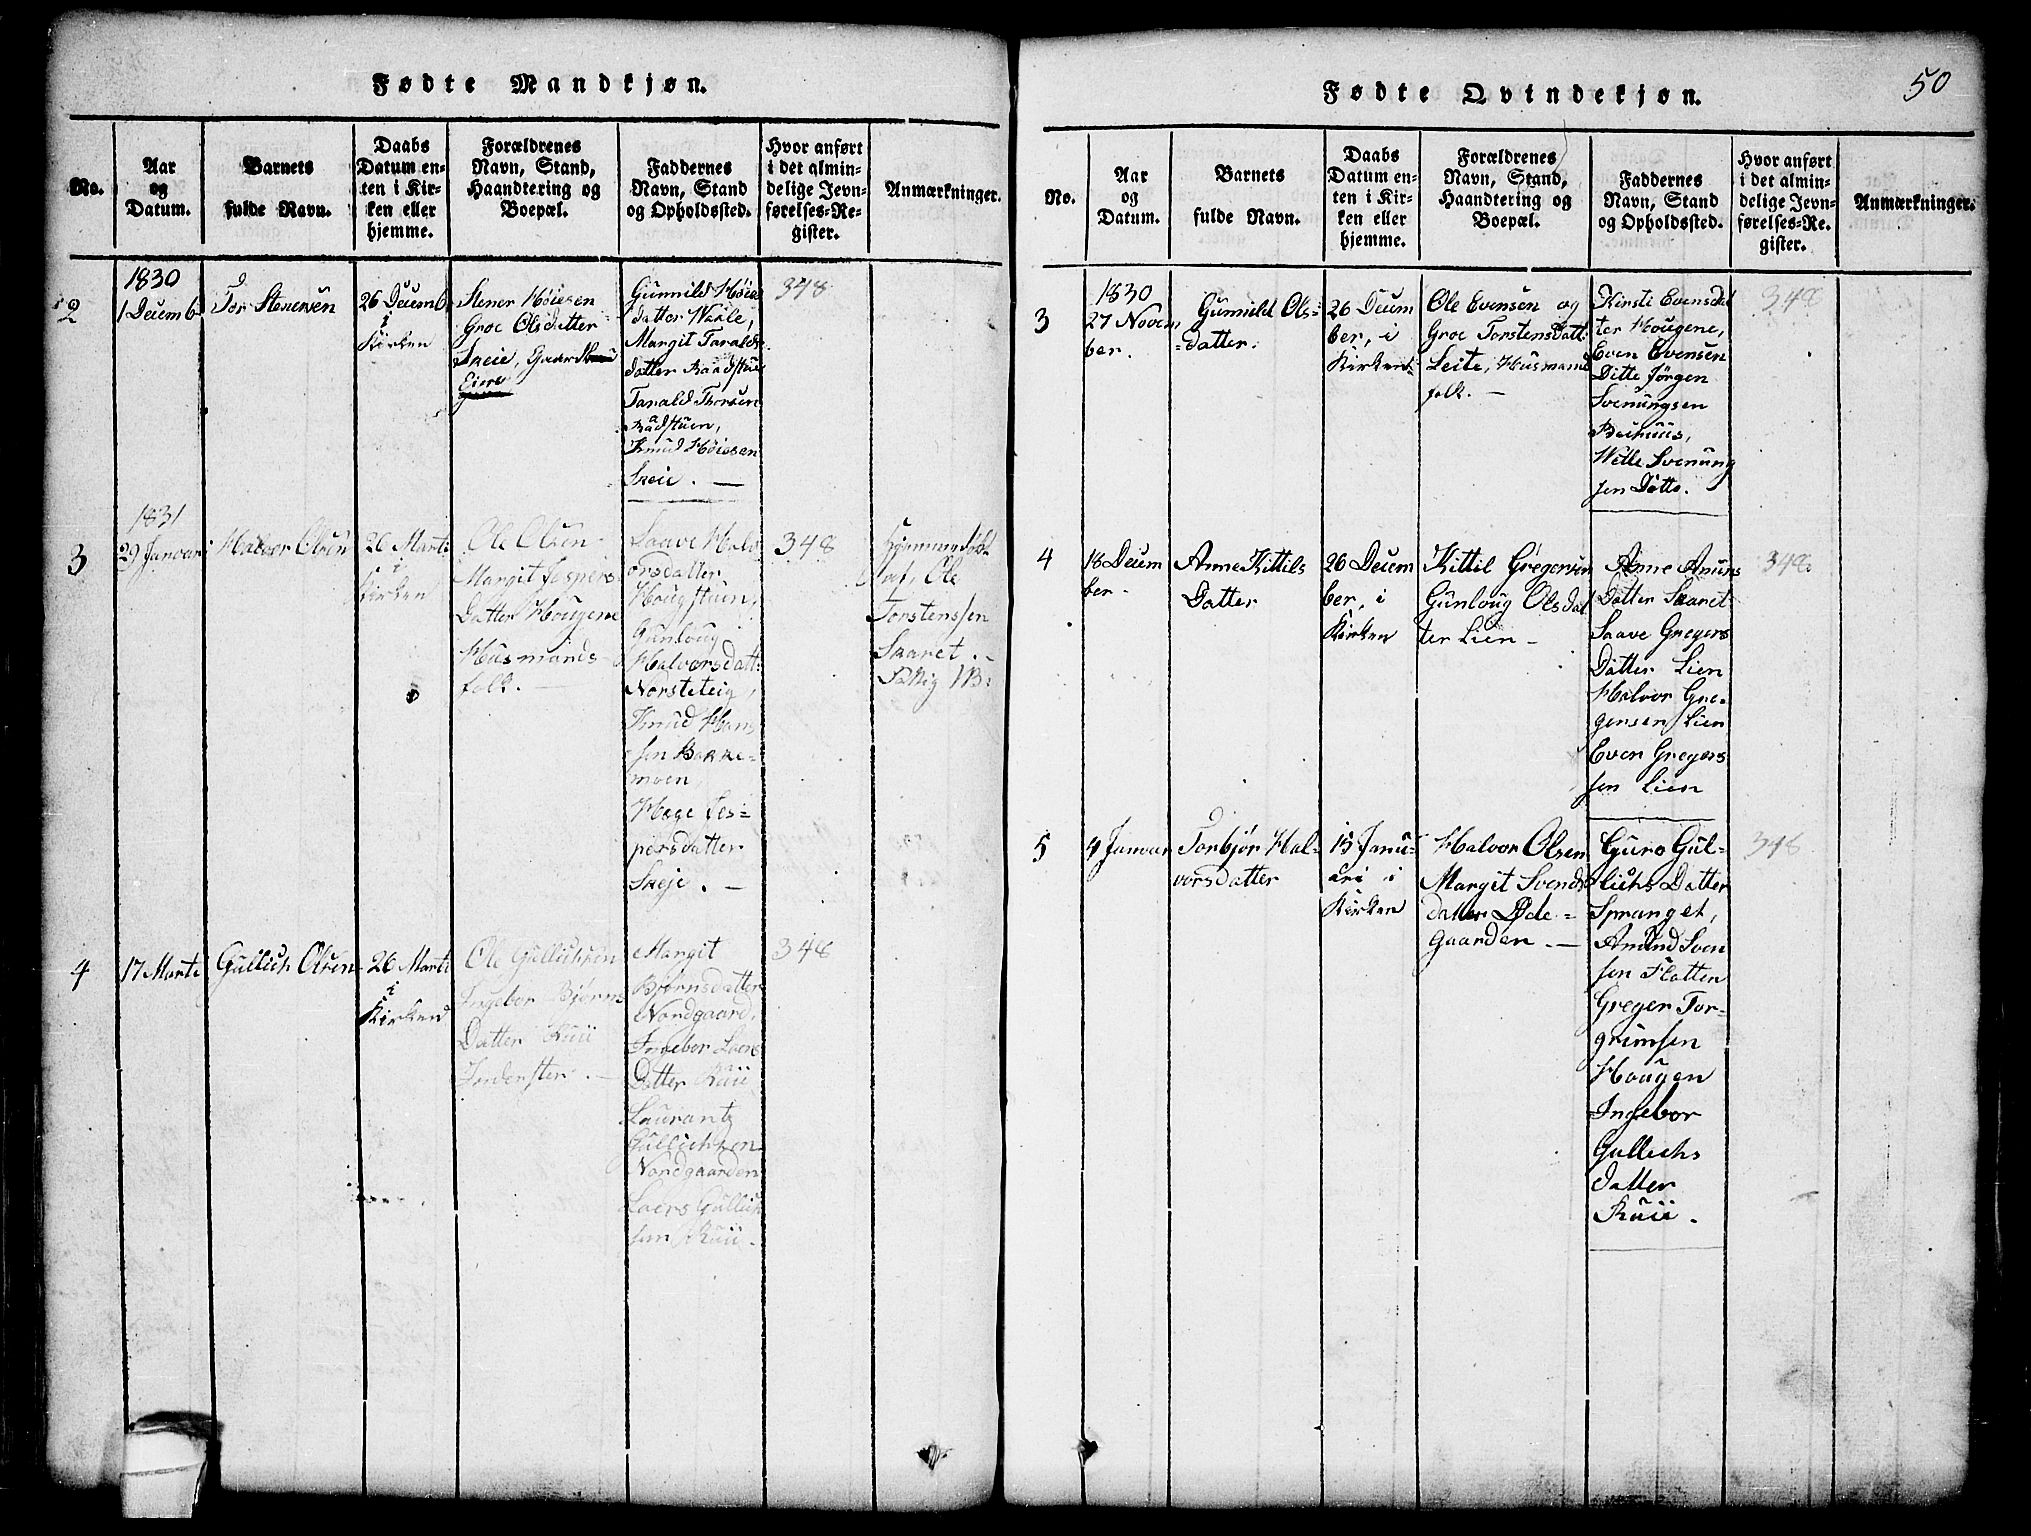 Fødte Mandkjøn.
No.
Aar
og
Datum.
Barnets
fulde Navn.
Daabs
Datum en-
ten i Kir-
ken eller
hjemme.
Forældrenes
Navn, Stand,
Haandtering og
Boepæl.
Faddernes
Navn, Stand
og Opholdssted.
Hvor anført
i det almin-
delige Jevn-
førelses-Re-
gister.
Anmærkninger.
2
1830
1 Decemb
Tor Stenersen
26 Decemb
i
Kirken
Stener Høiesen
Groe Olsdatter
Skeie, Gaard
Eiere
Gunnild Høie
datter
Margit Taralds
datter Raadstue
Tarald Thorsen
Raadstuen,
Knud Høiesen
Skeie. —
348
3
1831
29 Januari
Halvor Olsen
26 Marti
i
Kirken
Ole Olsen
Margit Jespers
Datter Hougene
Husmands-
folk. —
Saave Halv
orsdatter
Hougstuen,
Gunloug
Halvorsdatt:
Norsteteig,
Knud Hans
sen Bakke-
moen,
Hæge Jes=
persdatter
Skeje. —
348
Hjemmedøbt
af Ole
Torstenssen
Skaret. —
4
17 Marti
Gullich Olsen
26 Marti
i
Kirken
Ole Gullichsen
Ingebor Bjørns
Datter Ruii
Inderster. —
Margit
Bjørnsdatter
Nordgaard,
Ingebor Laers
Datter Ruii
Laurantz
Gullichsen
Nordgaarden
Laers Gullich
sen Ruii. —
348
Fødte Qvindekjøn.
50
No.
Aar
og
Datum.
Barnets
fulde Navn.
Daabs
Datum en-
ten i Kir-
ken eller
hjemme.
Forældrenes
Navn, Stand,
Haandtering og
Boepæl.
Faddernes
Navn, Stand
og Opholdssted.
Hvor anført
i det almin-
delige Jevn-
førelses-Re-
gister.
Anmærkninger.
3
1830
27 Novem
ber.
Gunnild Ols=
=datter.
26 Decem
ber, i
Kirken
Ole Evensen og
Groe Torstensdatt:
Leite, Husmand
folk. —
Kirsti Evensdat
ter Hougene,
Even Evensen
Ditto Jørgen
Svenungsen
Wille Svenung
sen Ditto.
348
4
18 Decem
ber.
Anne Kittils
Datter
26 Decem
ber, i
Kirken
Kittil Gregersen
Gunloug Olsdat
ter Lien —
Anne Amuns
Datter Skaret
Saave Gregers
Datter Lien
Halvor Gre-
gersen Lien
Even Gregers
sen Lien
348.
5
4 Januar
Torbjør Hal-
vorsdatter
15 Janu-
ari i
Kirken
Halvor Olsen
Margit Svends
datter Øde=
gaarden. —
Guro Gul-
lichs Datter
Spranget,
Amund Sven
sen Flatten
Greger Tor-
grimsen
Hougen
Ingebor
Gullichs
datter
Ruii.
348